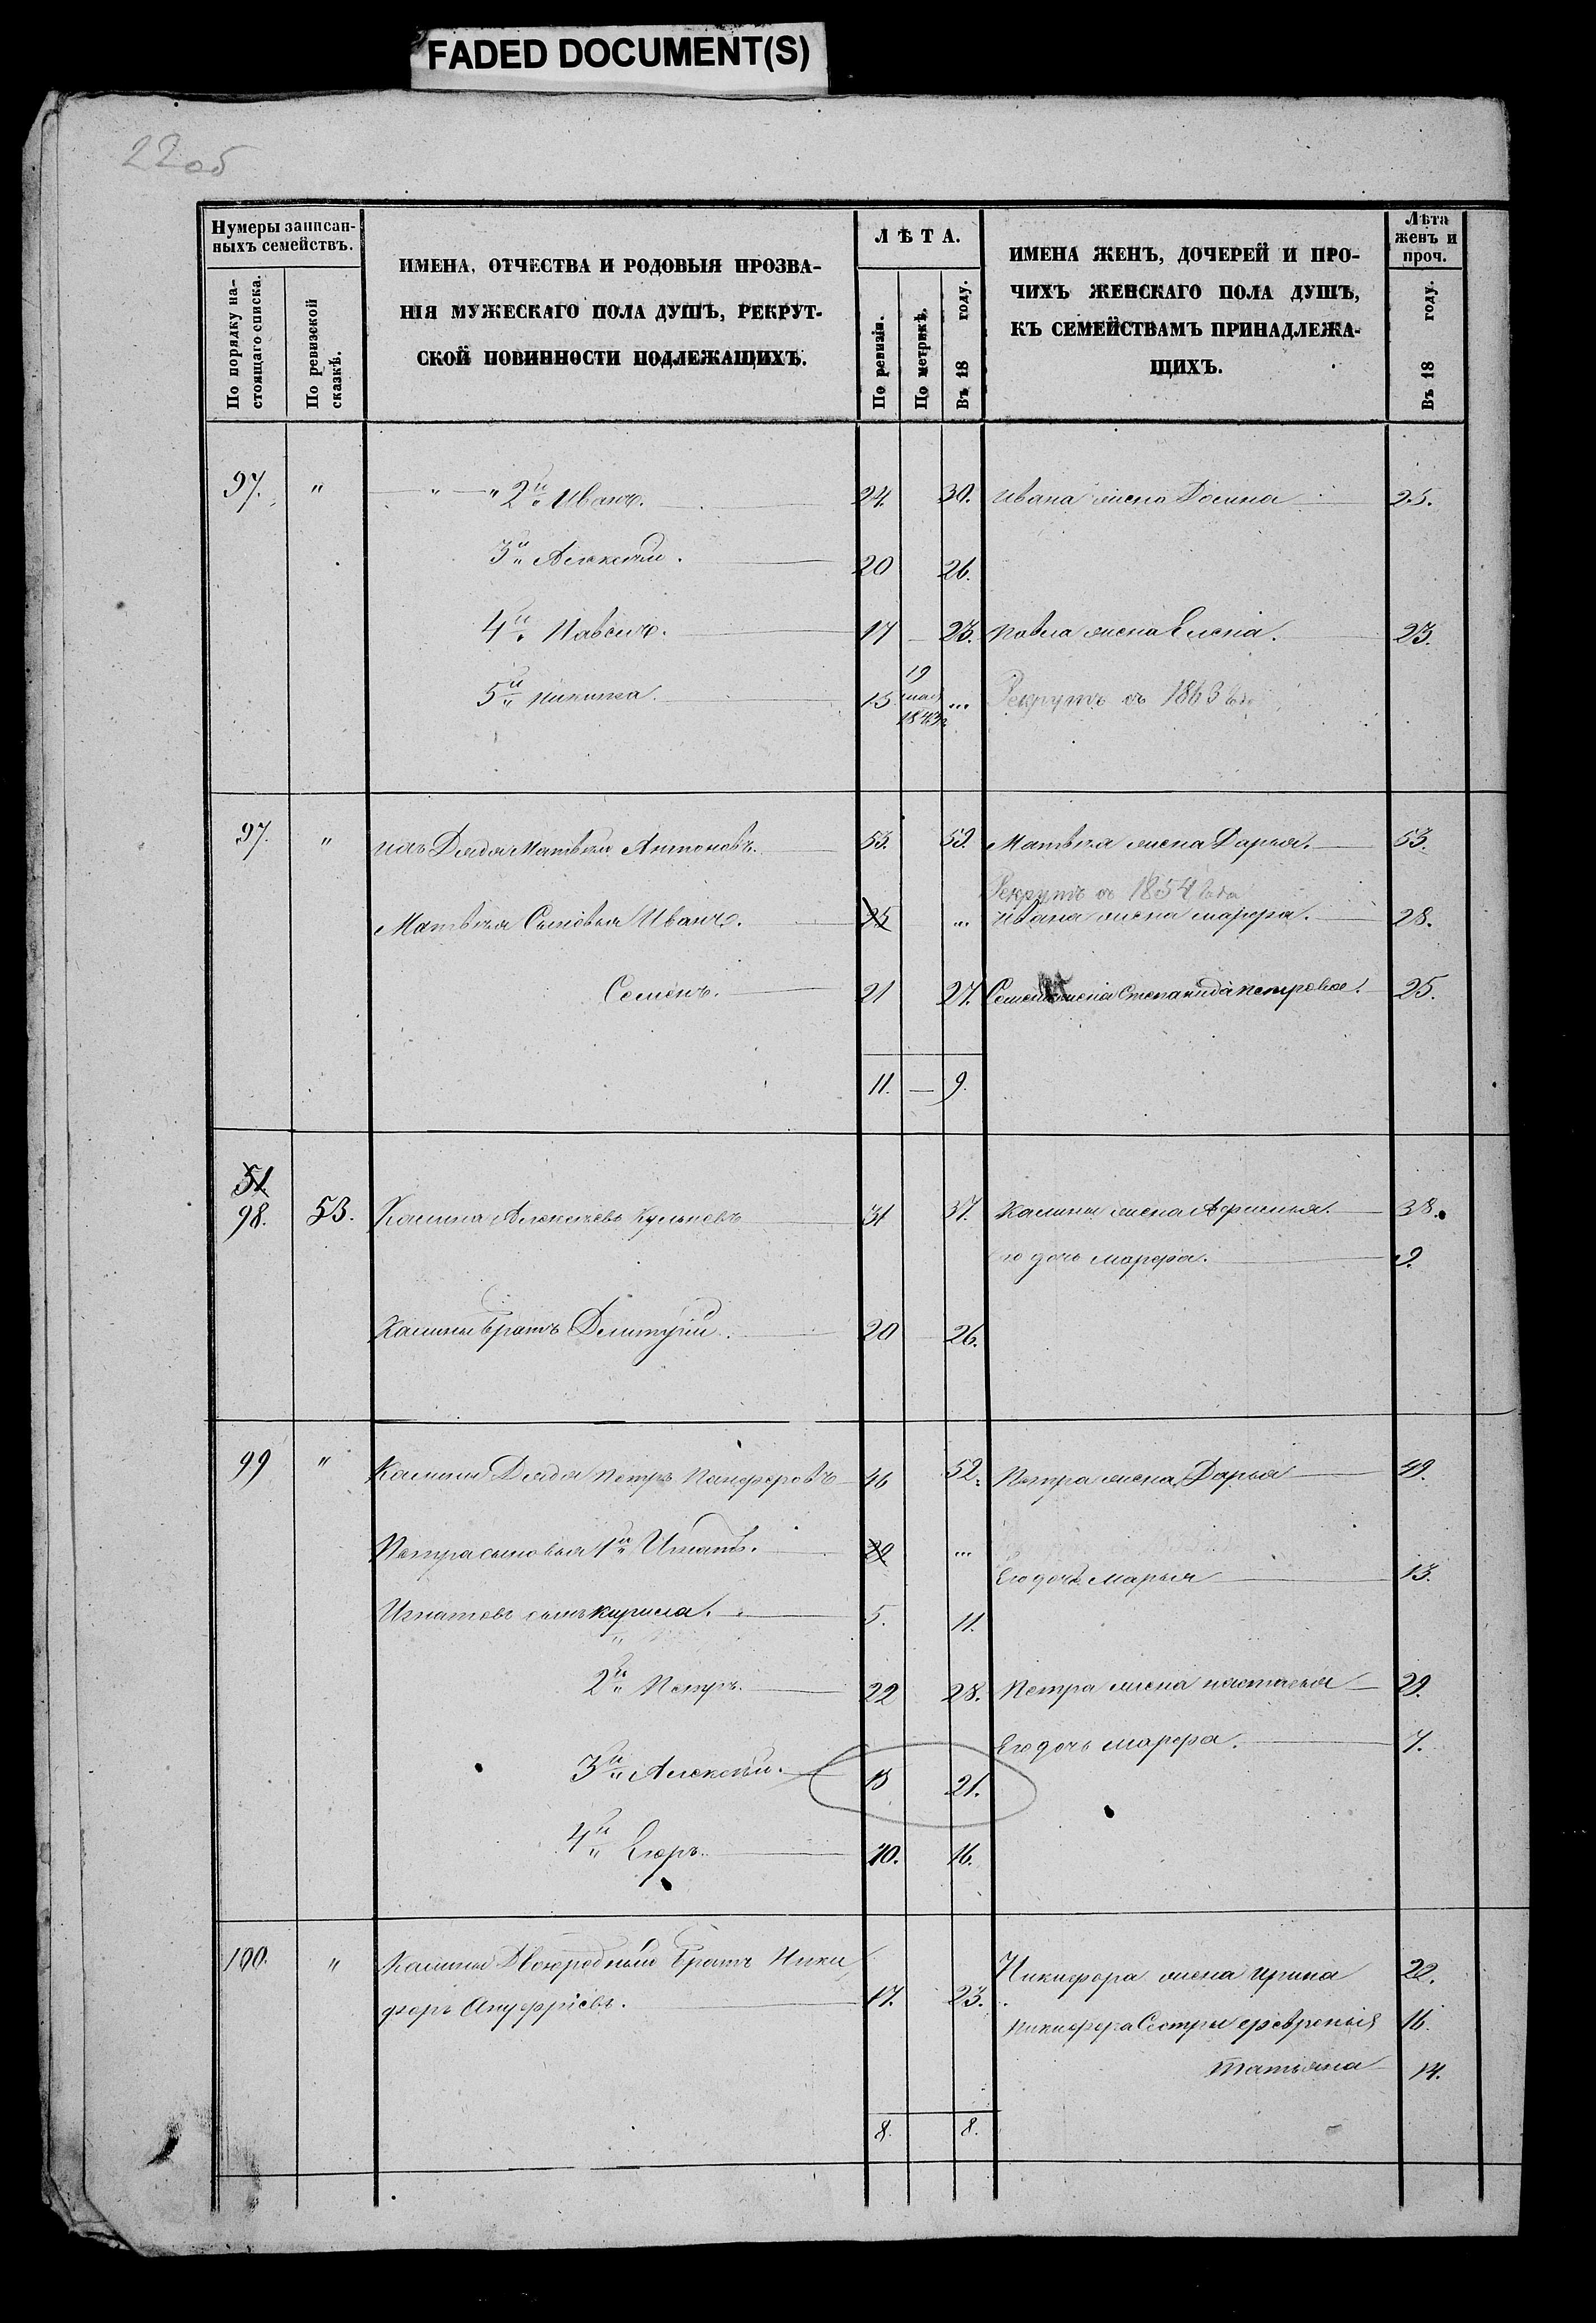 FADED DOCUMENT(S)
22об
Нумеры записан-
ныхъ семействъ.
По порядку на-
стоящаго списка.
По ревизской
сказкѣ.
ИМЕНА, ОТЧЕСТВА И РОДОВЫЯ ПРОЗВА-
НІЯ МУЖЕСКАГО ПОЛА ДУШЪ, РЕКРУТ-
СКОЙ ПОВИННОСТИ ПОДЛЕЖАЩИХЪ.
ЛѢТА.
По ревизіи.
По метрикѣ.
Въ 18 году.
ИМЕНА ЖЕНЪ, ДОЧЕРЕЙ И ПРО-
ЧИХЪ ЖЕНСКАГО ПОЛА ДУШЪ,
КЪ СЕМЕЙСТВАМЪ ПРИНАДЛЕЖА-
ЩИХЪ.
Лѣта
женъ и
проч.
Въ 18 году.
97. " — " — " 2й Иванъ. 24. 30. Ивана жена 25.
3й Алексѣй. 20 26.
4й Павелъ. 17 23. Павла жена Елена. 23.
5й Никита. 15 19 мая 1843 ... Рекрутъ съ 1863 года
97. " ихъ Дядя Матвѣй Антоновъ. 53. 59. Матвѣя жена Дарья. 53.
Рекрутъ съ 1854 года
Матвѣя Сыновья Иванъ. 25 ... Ивана жена марѳра. 28.
Семенъ. 21 27. Семена жена Степанида петровна. 25.
11. — 9.
51.
98. 53. Калина Алексѣевъ 31 37. Калины жена Афимья. 38.
его дочь марфа. 9.
Калины братъ Дмитрій. 20 26.
99 " Калины Дядя Петръ Панферовъ 46 52. Петра жена Дарья 49.
Петра сыновья 1й Игнатъ. 29 ...
Его дочь Марья 13.
Игнатовъ сынъ кирила. 5. 11.
2й Петръ. 22 28. Петра жена настасья 29.
Его дочь марфа. 7.
3й Алексѣй. 15 21.
4й Егоръ. 10. 16.
100. " Калины Двоюродный братъ Ники
форъ Ануфріевъ. 17. 23. Никифора жена ирина 22.
Никифора Сестры февронья 16.
татьяна 14.
8. 8.